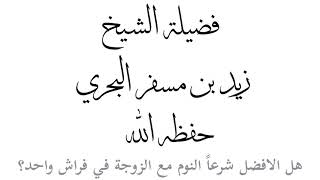 فضيلة الشيخ
زيد بن مسفر البحري
حفظه الله
هل الافضل شرعاً النوم مع الزوجة في فراش واحد؟